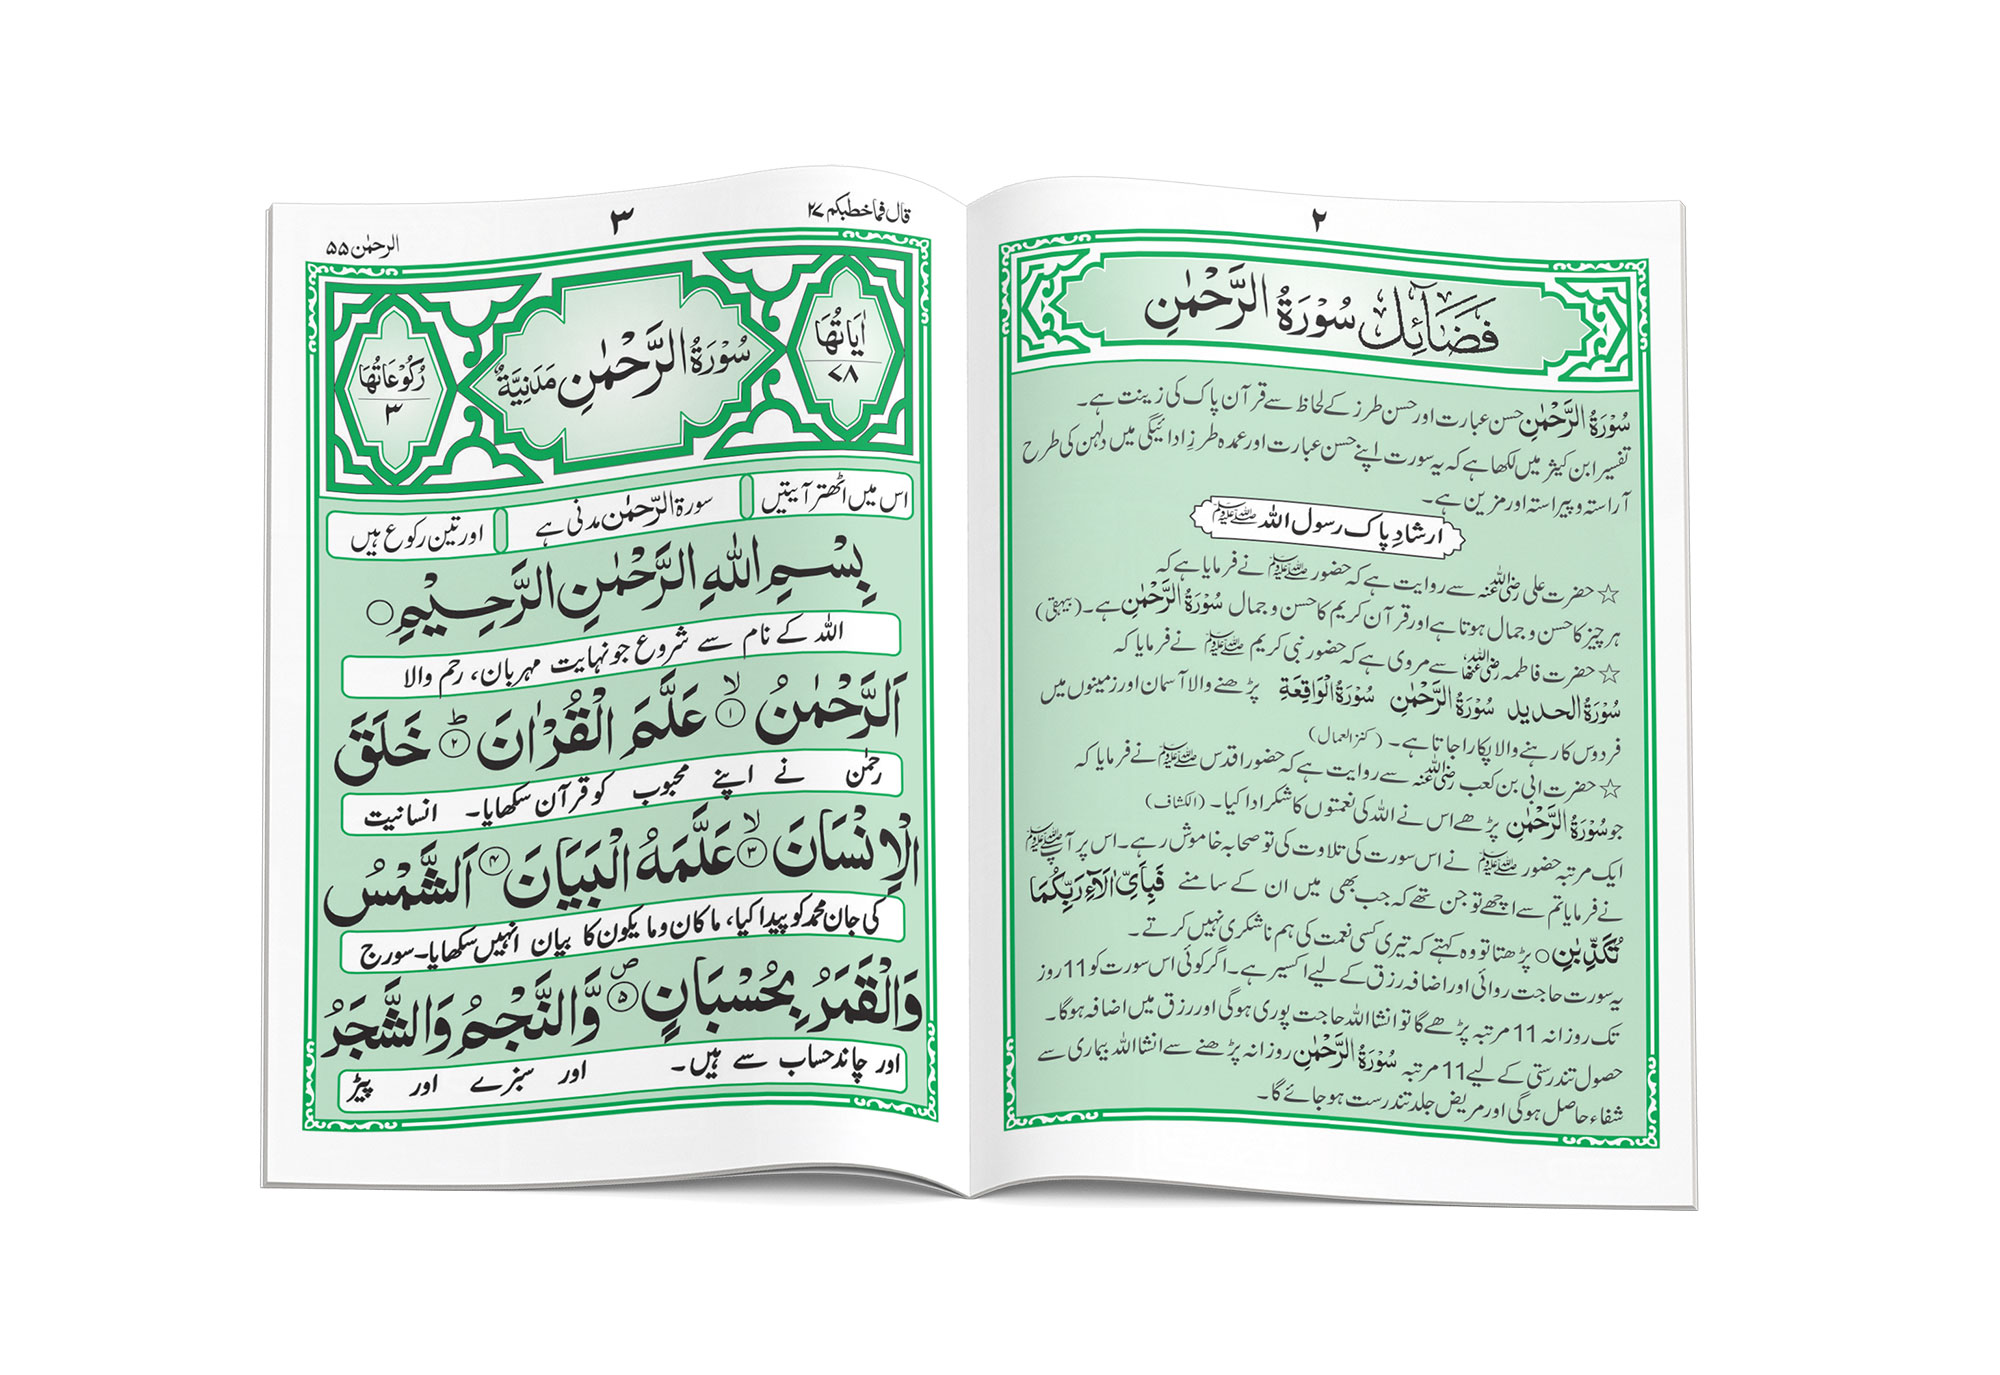 ۲
فَضَآئِل سُوْرَةُ الرَّحْمٰنِ
سُوْرَةُ الرَّحْمٰنِ حسن عبارت اور حسن طرز کے لحاظ سے قرآن پاک کی زینت ہے۔
تفسیر ابن کیثر میں لکھا ہے کہ یہ سورت اپنے حسن عبارت اور عمدہ طرزِ ادائیگی میں دلہن کی طرح
آراستہ و پیراستہ اور مزین ہے۔
ارشادِ پاک رسول اللہ ﷺ
☆ حضرت علی رضی اللہ عنہ سے روایت ہے کہ حضور ﷺ نے فرمایا ہے کہ
ہر چیز کا حسن و جمال ہوتا ہے اور قرآن کریم کا حسن و جمال سُوْرَةُ الرَّحْمٰنِ ہے۔ (بیہقی)
☆ حضرت فاطمہ رضی اللہ عنہا سے مروی ہے کہ حضور نبی کریم ﷺ نے فرمایا کہ
سُوْرَةُ الحدید سُوْرَةُ الرَّحْمٰنِ سُوْرَةُ الْوَاقِعَةِ پڑھنے والا آسمان اور زمینوں میں
فردوس کا رہنے والا پکارا جاتا ہے۔ (کنز العمال)
☆ حضرت ابی بن کعب رضی اللہ عنہ سے روایت ہے کہ حضور اقدس ﷺ نے فرمایا کہ
جو سُوْرَةُ الرَّحْمٰنِ پڑھے اس نے اللہ کی نعمتوں کا شکر ادا کیا۔ (الکشاف)
ایک مرتبہ حضور ﷺ نے اس سورت کی تلاوت کی تو صحابہ خاموش رہے۔ اس پر آپ ﷺ
نے فرمایا تم سے اچھے تو جن تھے کہ جب بھی میں ان کے سامنے فَبِاَيِّ اٰلَآءِ رَبِّكُمَا
تُكَذِّبٰنِ○ پڑھتا تو وہ کہتے کہ تیری کسی نعمت کی ہم ناشکری نہیں کرتے۔
یہ سورت حاجت روائی اور اضافہ رزق کے لیے اکسیر ہے۔ اگر کوئی اس سورت کو 11 روز
تک روزانہ 11 مرتبہ پڑھے گا تو انشا اللہ حاجت پوری ہوگی اور رزق میں اضافہ ہوگا۔
حصول تندرستی کے لیے 11 مرتبہ سُوْرَةُ الرَّحْمٰنِ روزانہ پڑھنے سے انشا اللہ بیماری سے
شفاء حاصل ہوگی اور مریض جلد تندرست ہو جائے گا۔
قال فما خطبکم ۲۷
۳
الرحمٰن ۵۵
اٰيَاتُهَا ۷۸
سُوْرَةُ الرَّحْمٰنِ مَدَنِيَّةٌ
رُكُوْعَاتُهَا ۳
اس میں اٹھتر آیتیں
سورة الرّحمٰن مدنی ہے
اور تین رکوع ہیں
بِسْمِ اللّٰهِ الرَّحْمٰنِ الرَّحِيْمِ○
اللہ کے نام سے شروع جو نہایت مہربان، رحم والا
اَلرَّحْمٰنُ ۙ۱ عَلَّمَ الْقُرْاٰنَ ؕ۲ خَلَقَ
رحمٰن نے اپنے محبوب کو قرآن سکھایا۔ انسانیت
الْاِنْسَانَ ۙ۳ عَلَّمَهُ الْبَيَانَ ۴ اَلشَّمْسُ
کی جان محمد کو پیدا کیا، ما کان وما یکون کا بیان انہیں سکھایا۔ سورج
وَالْقَمَرُ بِحُسْبَانٍ ۵ۖ وَّالنَّجْمُ وَالشَّجَرُ
اور چاند حساب سے ہیں۔ اور سبزے اور پیڑ